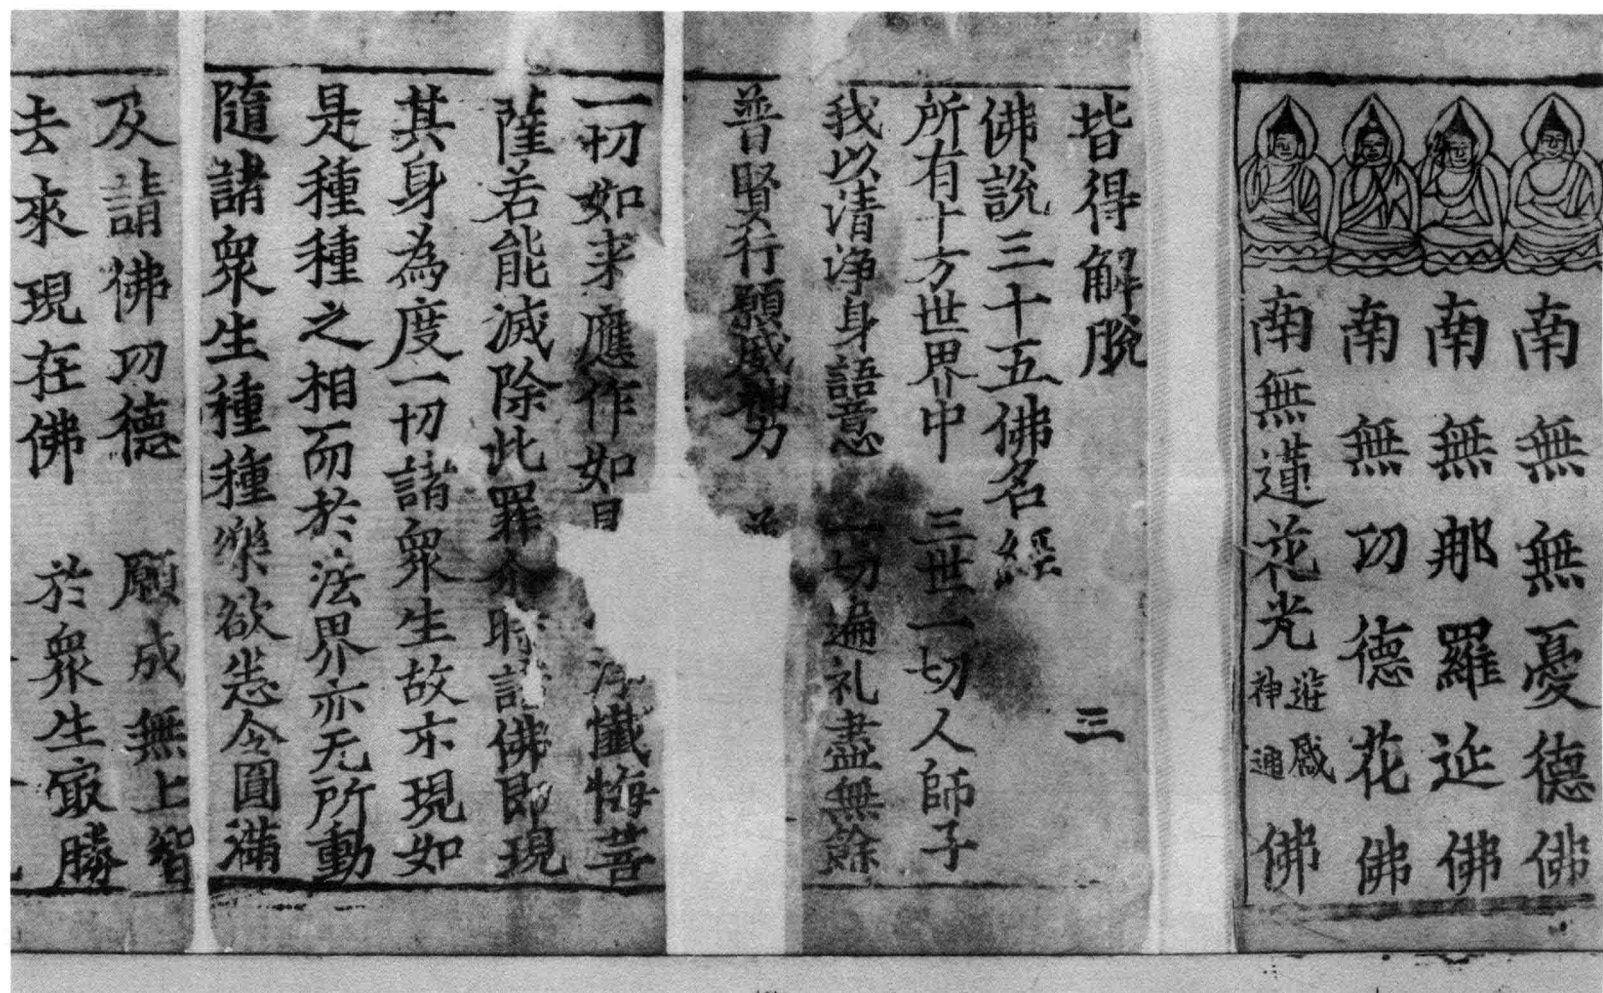 南無無憂德佛
南無那羅延佛
南無功德花佛
南無蓮花光遊戲神通佛
皆得解脫 三
佛說三十五佛名經
所有十方世界中 三世一切人師子
我以清淨身語意 一切遍礼盡無餘
普賢行願威神力
一切如来應作如是 淨懺悔菩
薩若能滅除此罪尒時諸佛即現
其身為度一切諸衆生故亦現如
是種種之相而於法界亦无所動
隨諸衆生種種樂欲悉令圓滿
及諸佛功德 願成無上智
去來現在佛 於衆生寂勝